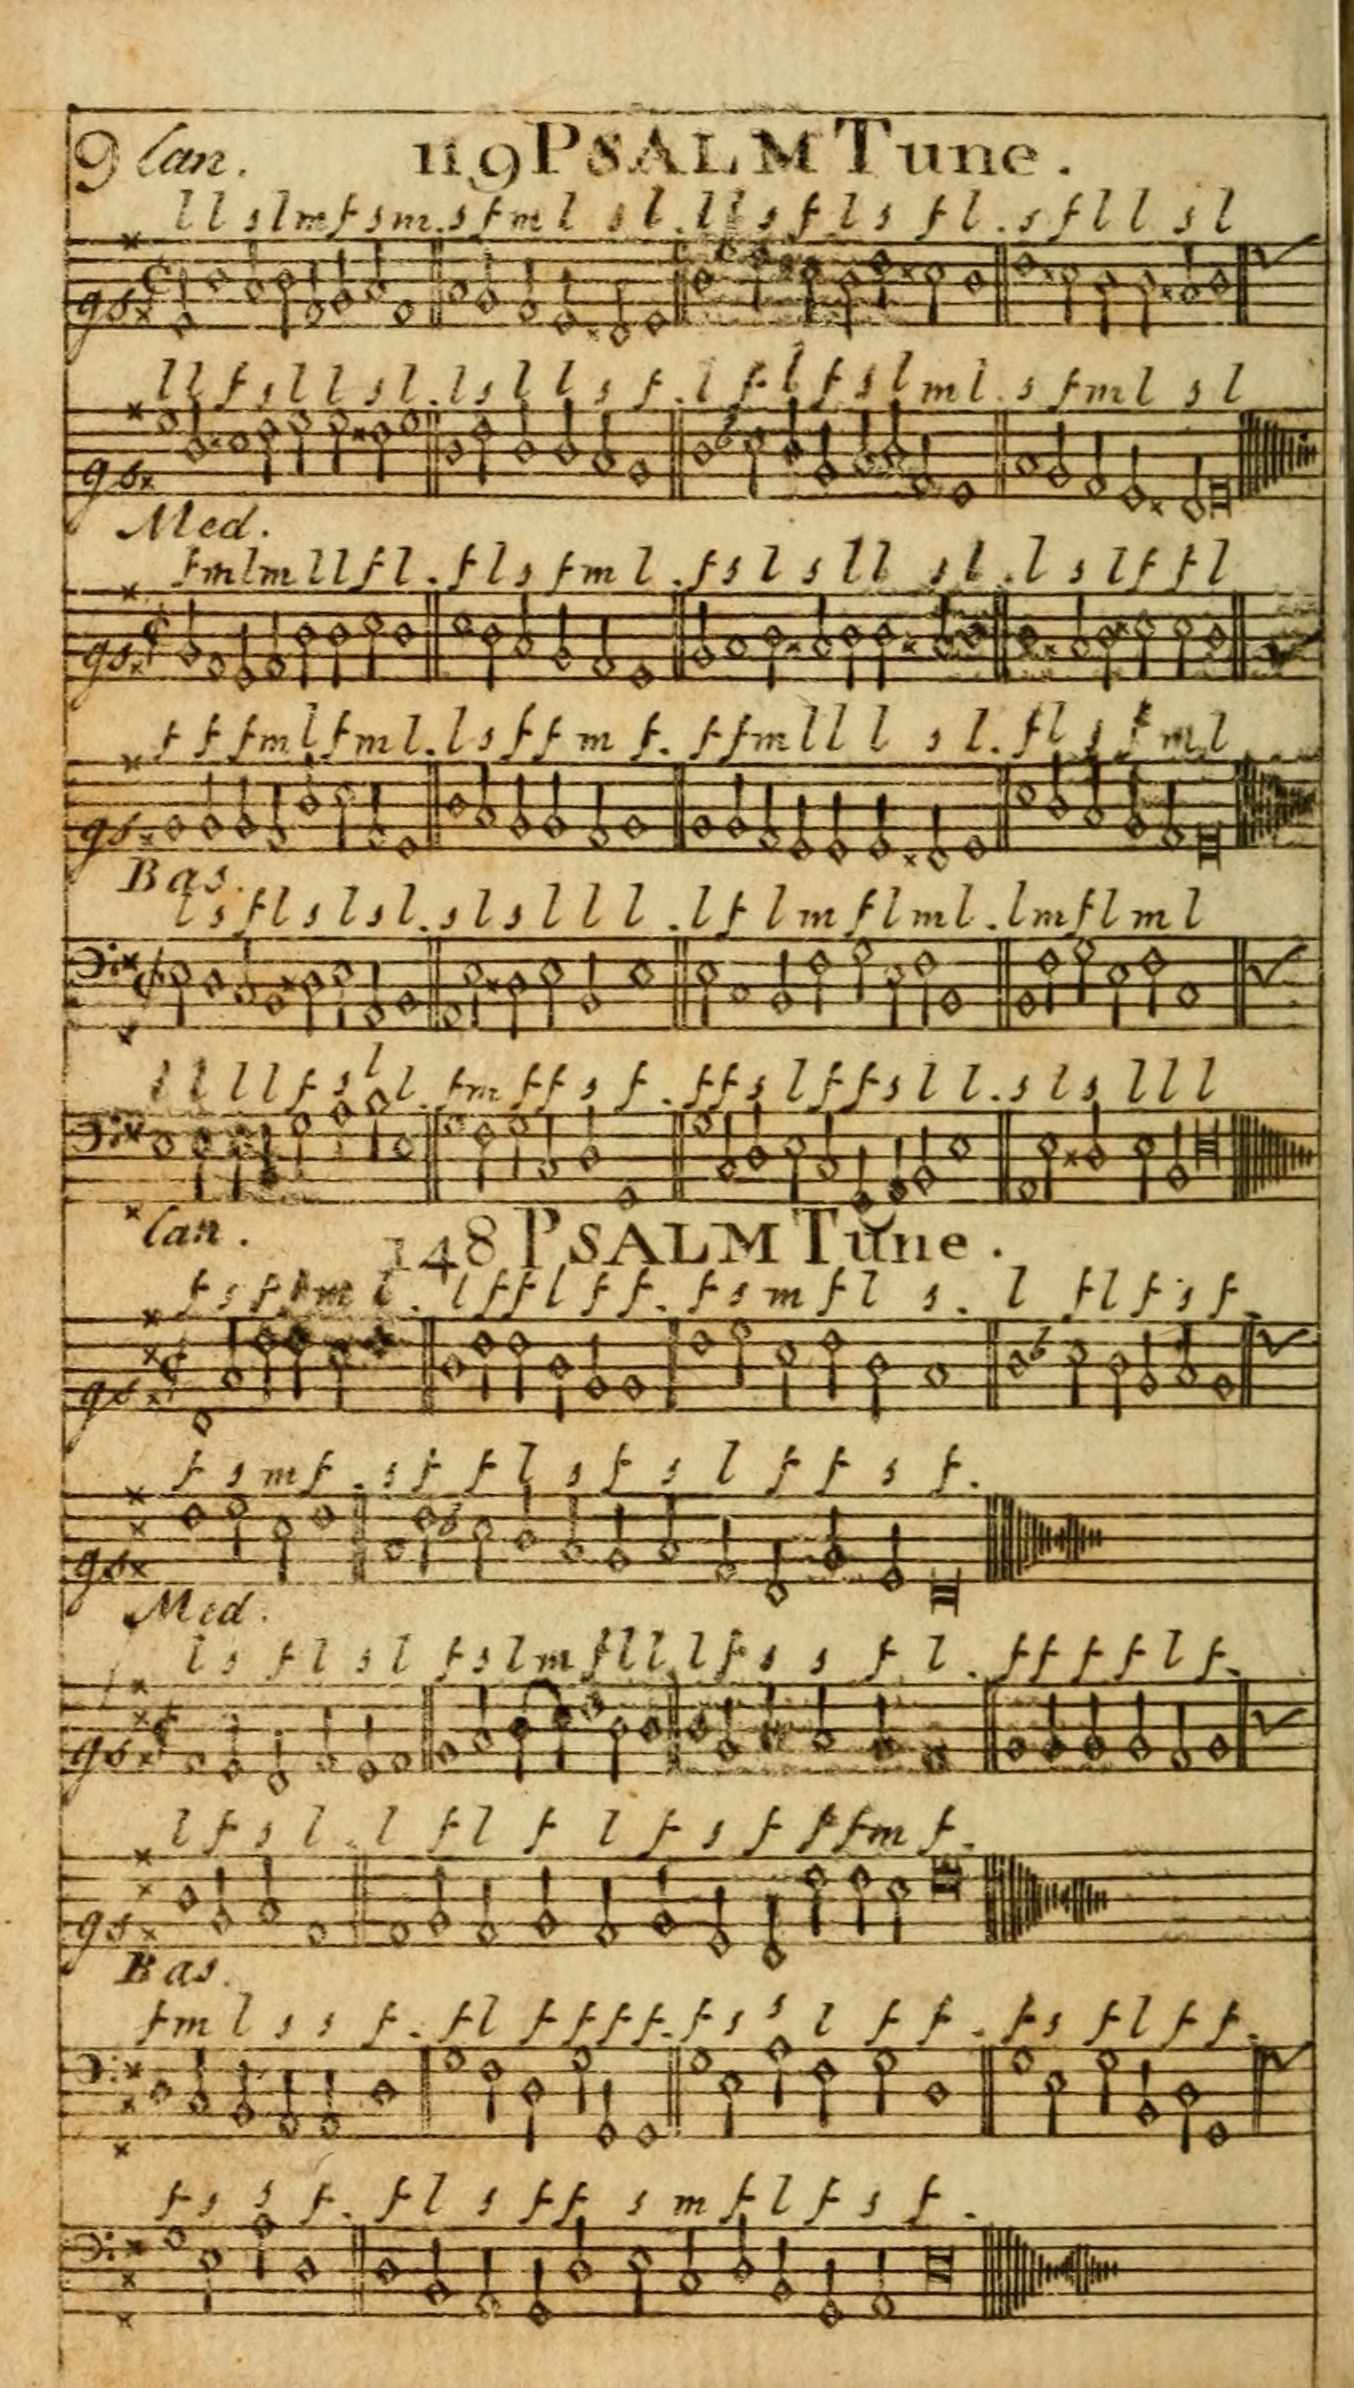 9 Can. 119 PSALM Tune.
l l s l m f s m . s f m l s l . l l s f l s f l . s f l l s l
gs
l l f s l l s l . l s l l s f . l f l f s l m l . s f m l s l
gs
Med.
f m l m l l f l . f l s f m l . f s l s l l s l . l s l f f l
gs
f f f m l f m l . l s f f m f . f f m l l l s l . f l s f m l
gs
Bas.
l s f l s l s l . s l s l l l . l f l m f l m l . l m f l m l
l l l l f s l l . f m f f s f . f f s l f f s l l . s l s l l l
Can. 148 PSALM Tune.
f s f f m l . l f f l f f . f s m f l s . l f l f s f .
gs
f s m f . s f f l s f s l f f s f .
gs
Med.
l s f l s l f s l m f l l l f s s f l . f f f f l f .
gs
l f s l . l f l f l f s f f f m f .
gs
Bas.
f m l s s f . f l f f f f . f s s l f f . f s f l f f .
f s s f . f l s f f s m f l f s f .